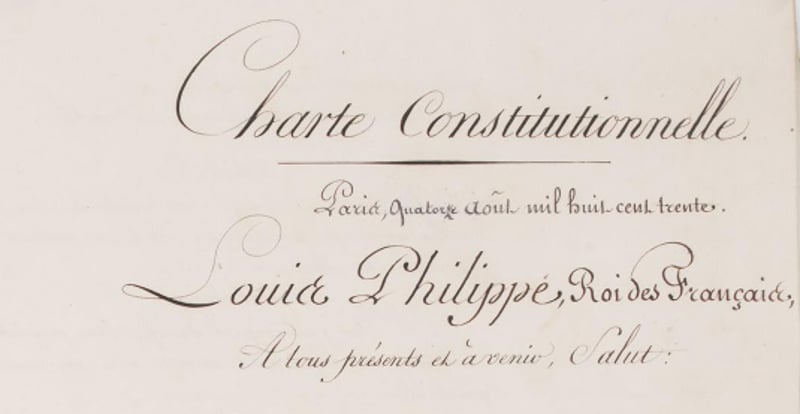 Charte Constitutionnelle.
Paris, Quatorze août mil huit cent trente.
Louis Philippe, Roi des Français,
A tous présents et à venir, Salut :